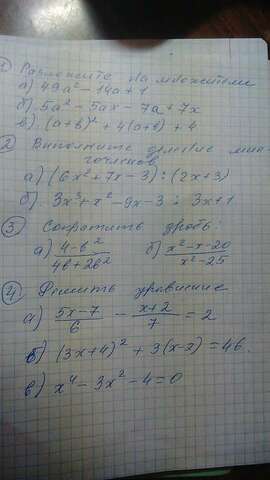 1 Разложите на множители
а) 49a² - 14a + 1
б) 5a² - 5ax - 7a + 7x
в) (a+b)² + 4(a+b) + 4
2 Выполните деление мно-
гочленов
а) (6x² + 7x - 3) : (2x+3)
б) 3x³ + x² - 9x - 3 : 3x+1
3 Сократить дробь:
а) (4-b²)/(4b+2b²) б) (x²-x-20)/(x²-25)
4 Решить уравнение
а) (5x-7)/6 - (x+2)/7 = 2
б) (3x+4)² + 3(x-2) = 46.
в) x⁴ - 3x² - 4 = 0